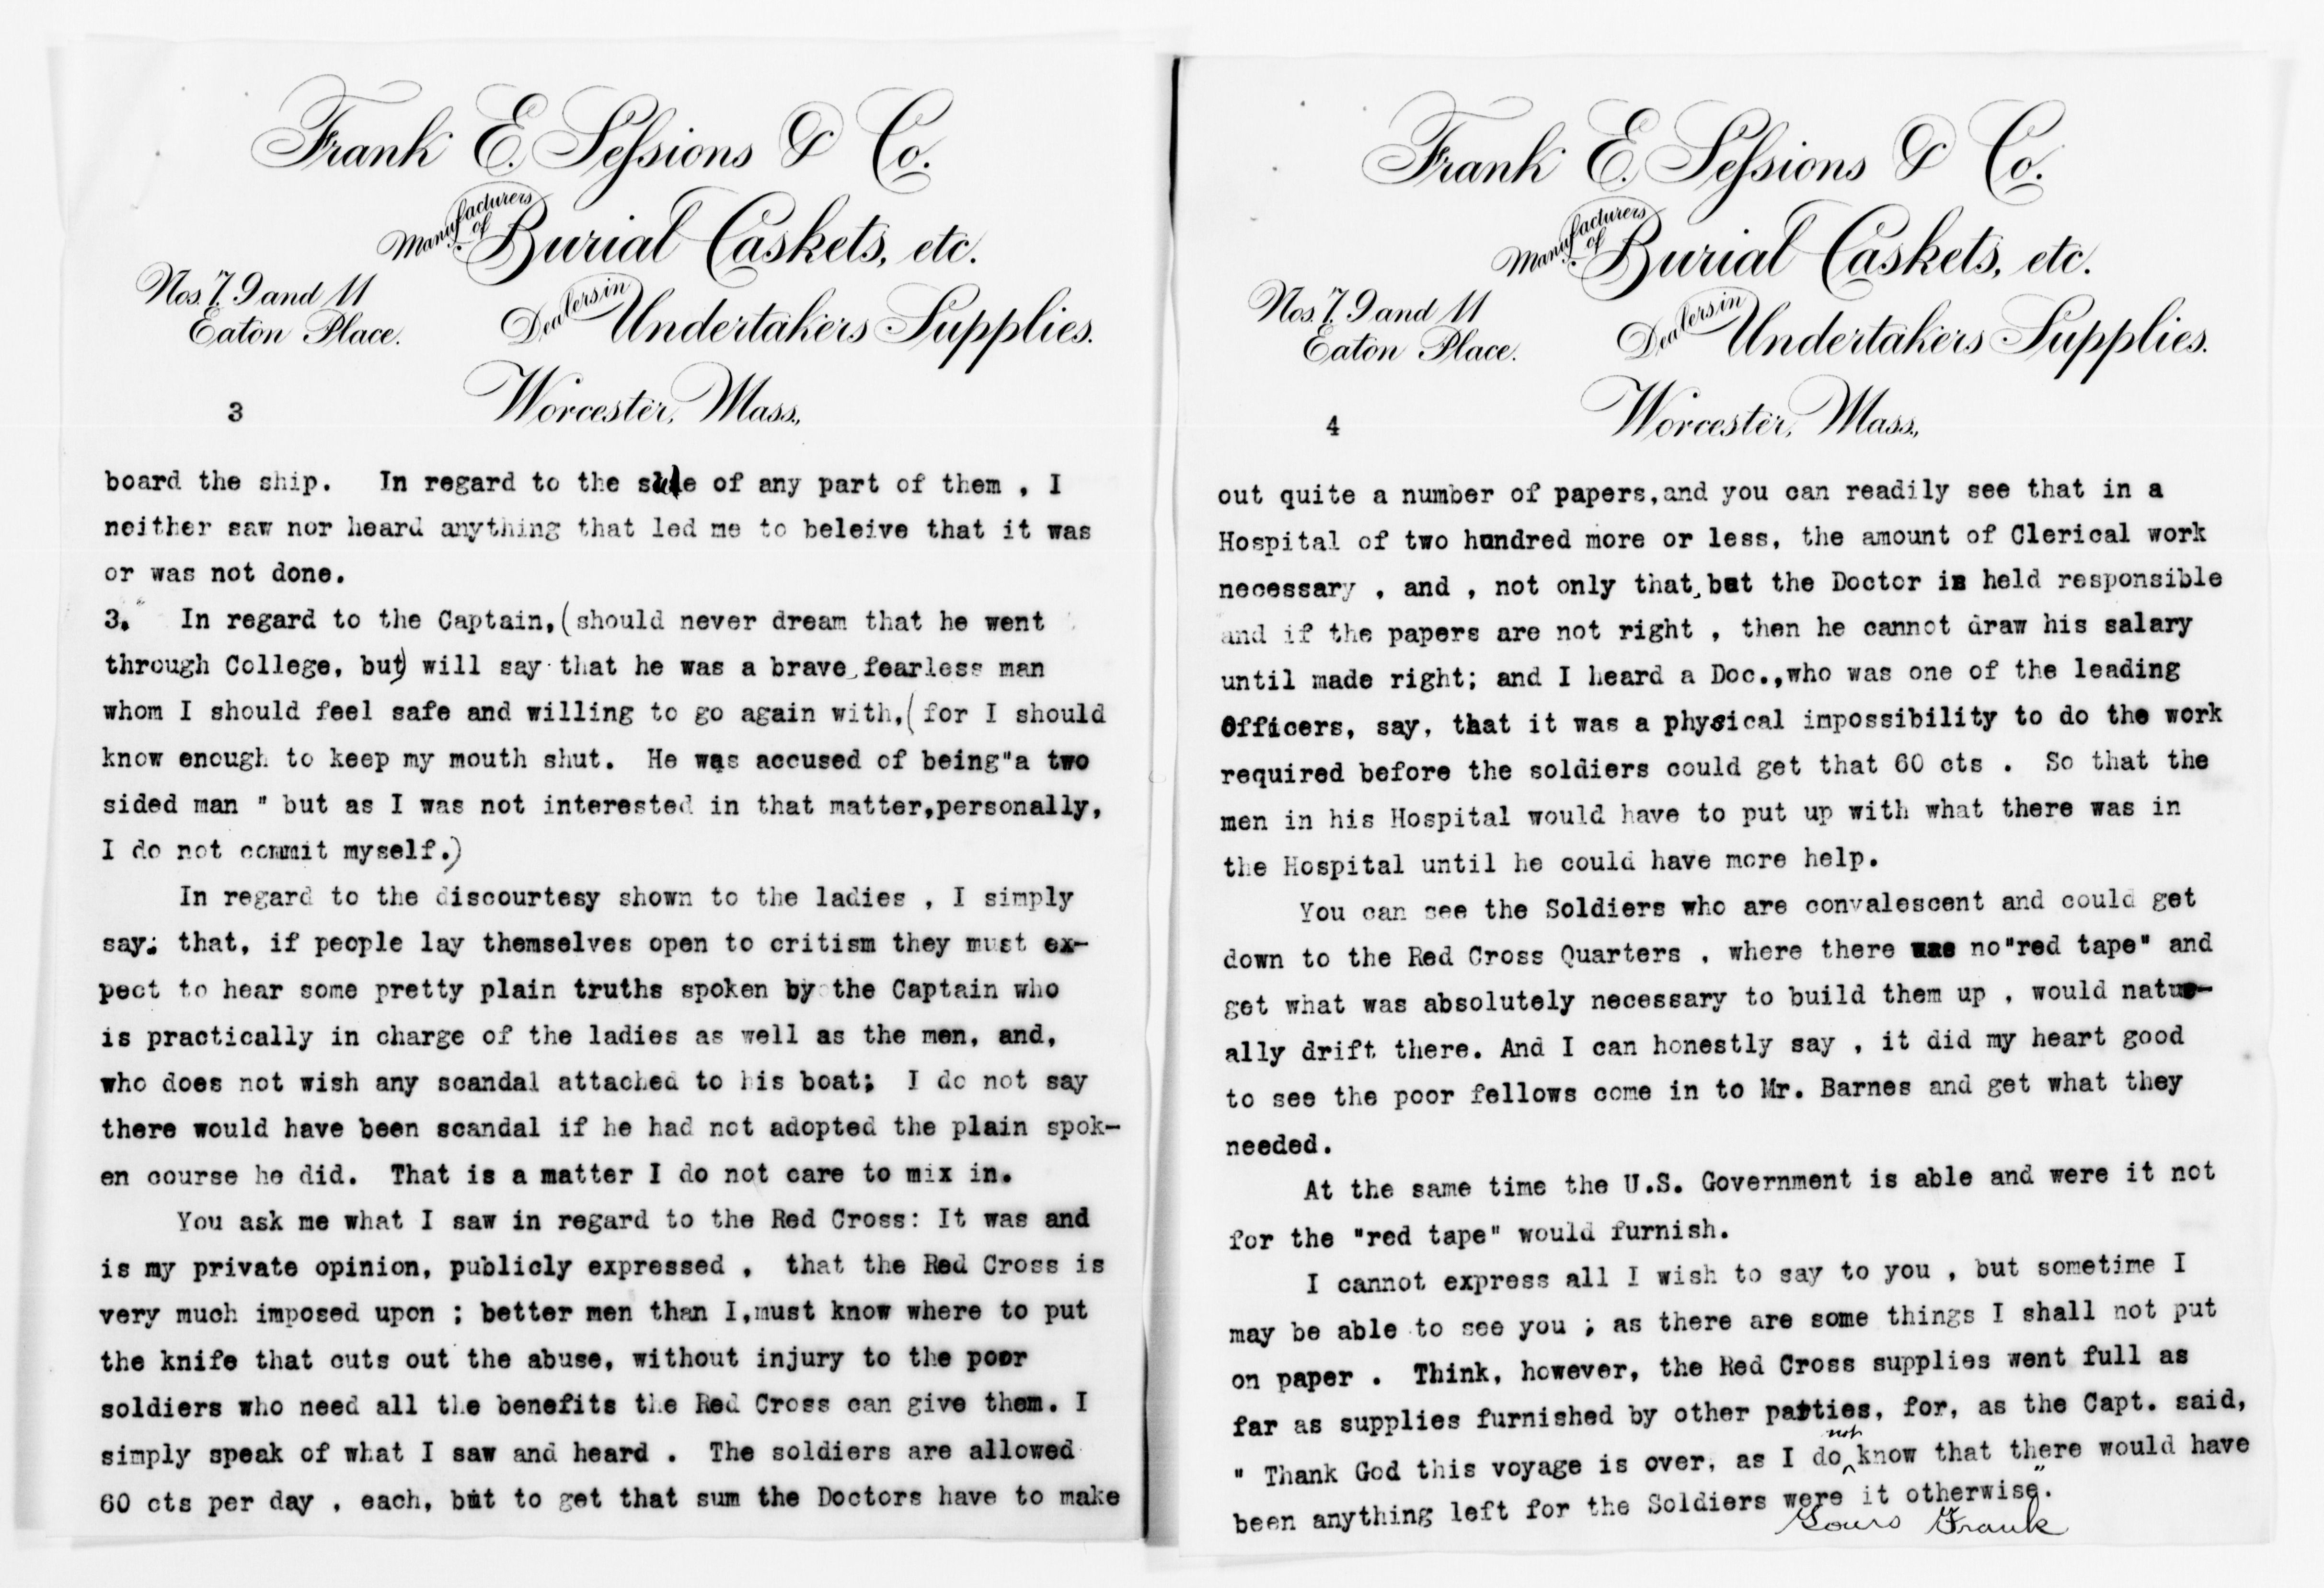 Frank E. Sessions & Co.
Manufacturers of Burial Caskets, etc.
Nos. 7, 9 and 11
Eaton Place.
Dealers in Undertakers Supplies.
3
Worcester, Mass.,
board the ship. In regard to the sale of any part of them , I
neither saw nor heard anything that led me to beleive that it was
or was not done.
3. In regard to the Captain,(should never dream that he went
through College, but) will say that he was a brave, fearless man
whom I should feel safe and willing to go again with,(for I should
know enough to keep my mouth shut. He was accused of being"a two
sided man " but as I was not interested in that matter,personally,
I do not commit myself.)
In regard to the discourtesy shown to the ladies , I simply
say; that, if people lay themselves open to critism they must ex-
pect to hear some pretty plain truths spoken by the Captain who
is practically in charge of the ladies as well as the men, and,
who does not wish any scandal attached to his boat; I do not say
there would have been scandal if he had not adopted the plain spok-
en course he did. That is a matter I do not care to mix in.
You ask me what I saw in regard to the Red Cross: It was and
is my private opinion, publicly expressed , that the Red Cross is
very much imposed upon ; better men than I,must know where to put
the knife that cuts out the abuse, without injury to the poor
soldiers who need all the benefits the Red Cross can give them. I
simply speak of what I saw and heard . The soldiers are allowed
60 cts per day , each, but to get that sum the Doctors have to make
Frank E. Sessions & Co.
Manufacturers of Burial Caskets, etc.
Nos. 7, 9 and 11
Eaton Place.
Dealers in Undertakers Supplies.
4
Worcester, Mass.,
out quite a number of papers,and you can readily see that in a
Hospital of two hundred more or less, the amount of Clerical work
necessary , and , not only that, but the Doctor is held responsible
and if the papers are not right , then he cannot draw his salary
until made right; and I heard a Doc.,who was one of the leading
Officers, say, that it was a physical impossibility to do the work
required before the soldiers could get that 60 cts . So that the
men in his Hospital would have to put up with what there was in
the Hospital until he could have more help.
You can see the Soldiers who are convalescent and could get
down to the Red Cross Quarters , where there was no"red tape" and
get what was absolutely necessary to build them up , would natur-
ally drift there. And I can honestly say , it did my heart good
to see the poor fellows come in to Mr. Barnes and get what they
needed.
At the same time the U.S. Government is able and were it not
for the "red tape" would furnish.
I cannot express all I wish to say to you , but sometime I
may be able to see you ; as there are some things I shall not put
on paper . Think, however, the Red Cross supplies went full as
far as supplies furnished by other parties, for, as the Capt. said,
" Thank God this voyage is over, as I do not know that there would have
been anything left for the Soldiers were it otherwise".
Yours Frank